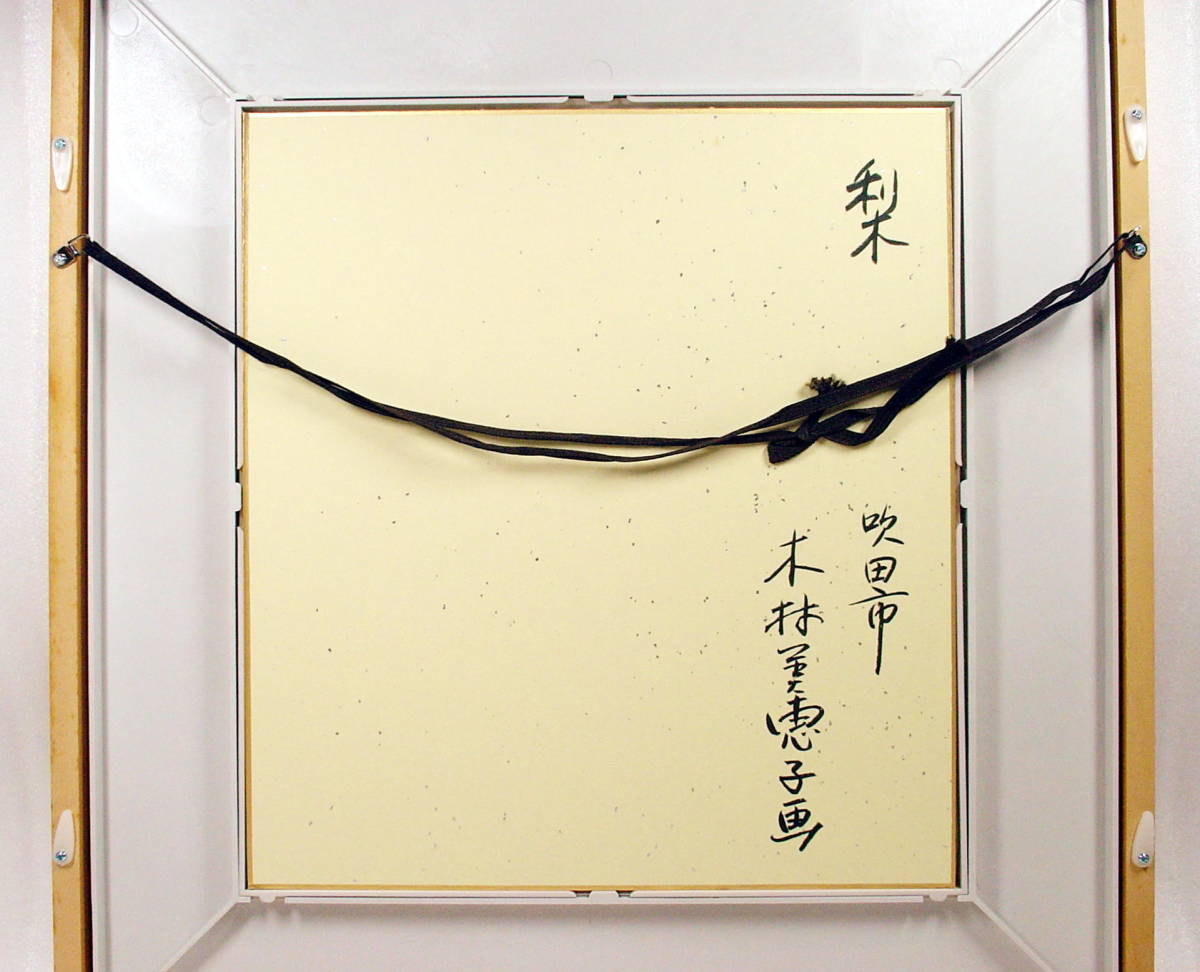 梨
吹田市
木林美恵子画